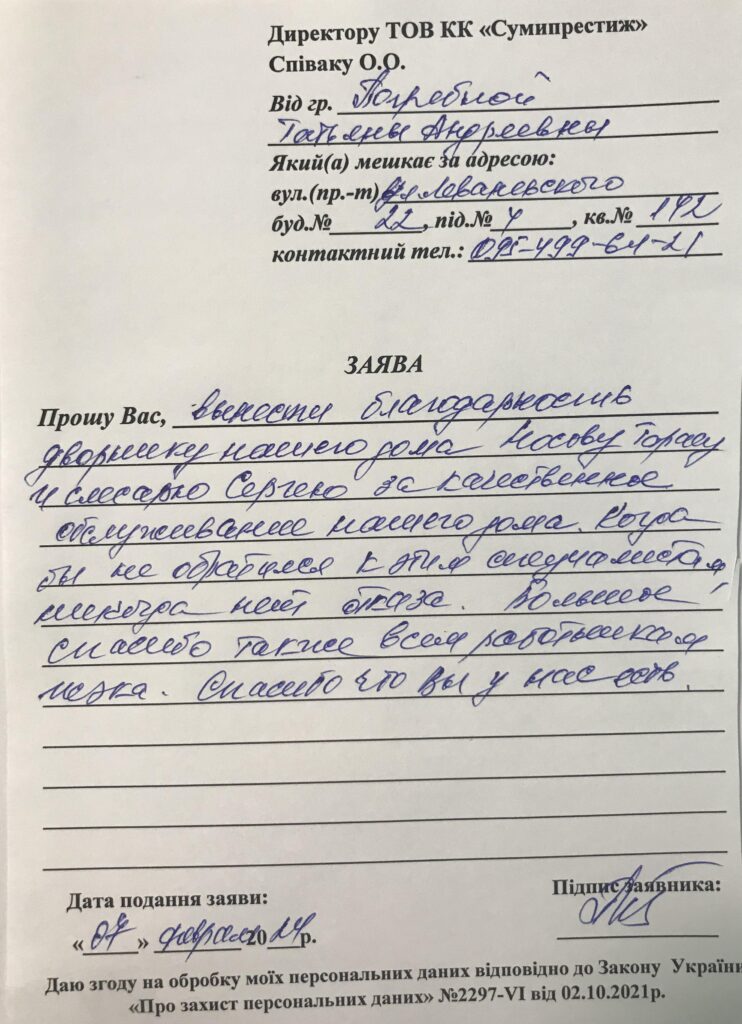 Директору ТОВ КК «Сумипрестиж»
Співаку О.О.
Від гр. Погребной
Татьяны Андреевны
Який(а) мешкає за адресою:
вул.(пр.-т) ул Леваневского
буд.№ 22, під.№ 4, кв.№ 142
контактний тел.: 095-499-64-21
ЗАЯВА
Прошу Вас, вынести благодарность
дворнику нашего дома Носову Тарасу
и слесарю Сергею за качественное
обслуживание нашего дома. Когда
бы не обратился к этим специалистам,
никогда нет отказа. Большое
спасибо также всем работникам
жэка. Спасибо что Вы у нас есть.
Дата подання заяви:
Підпис заявника:
«07» февраля 2024р.
Даю згоду на обробку моїх персональних даних відповідно до Закону України
«Про захист персональних даних» №2297-VI від 02.10.2021р.